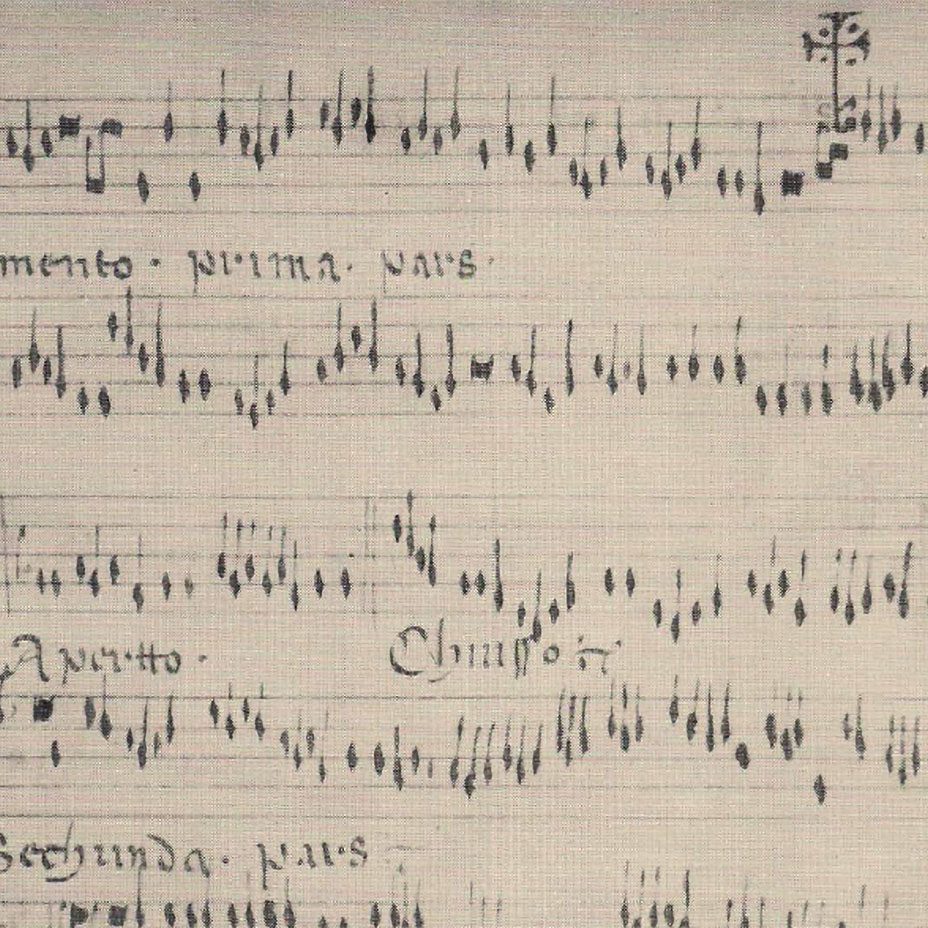 mento · prima · pars ·
Apertto · Chiusso
Sechunda · pars